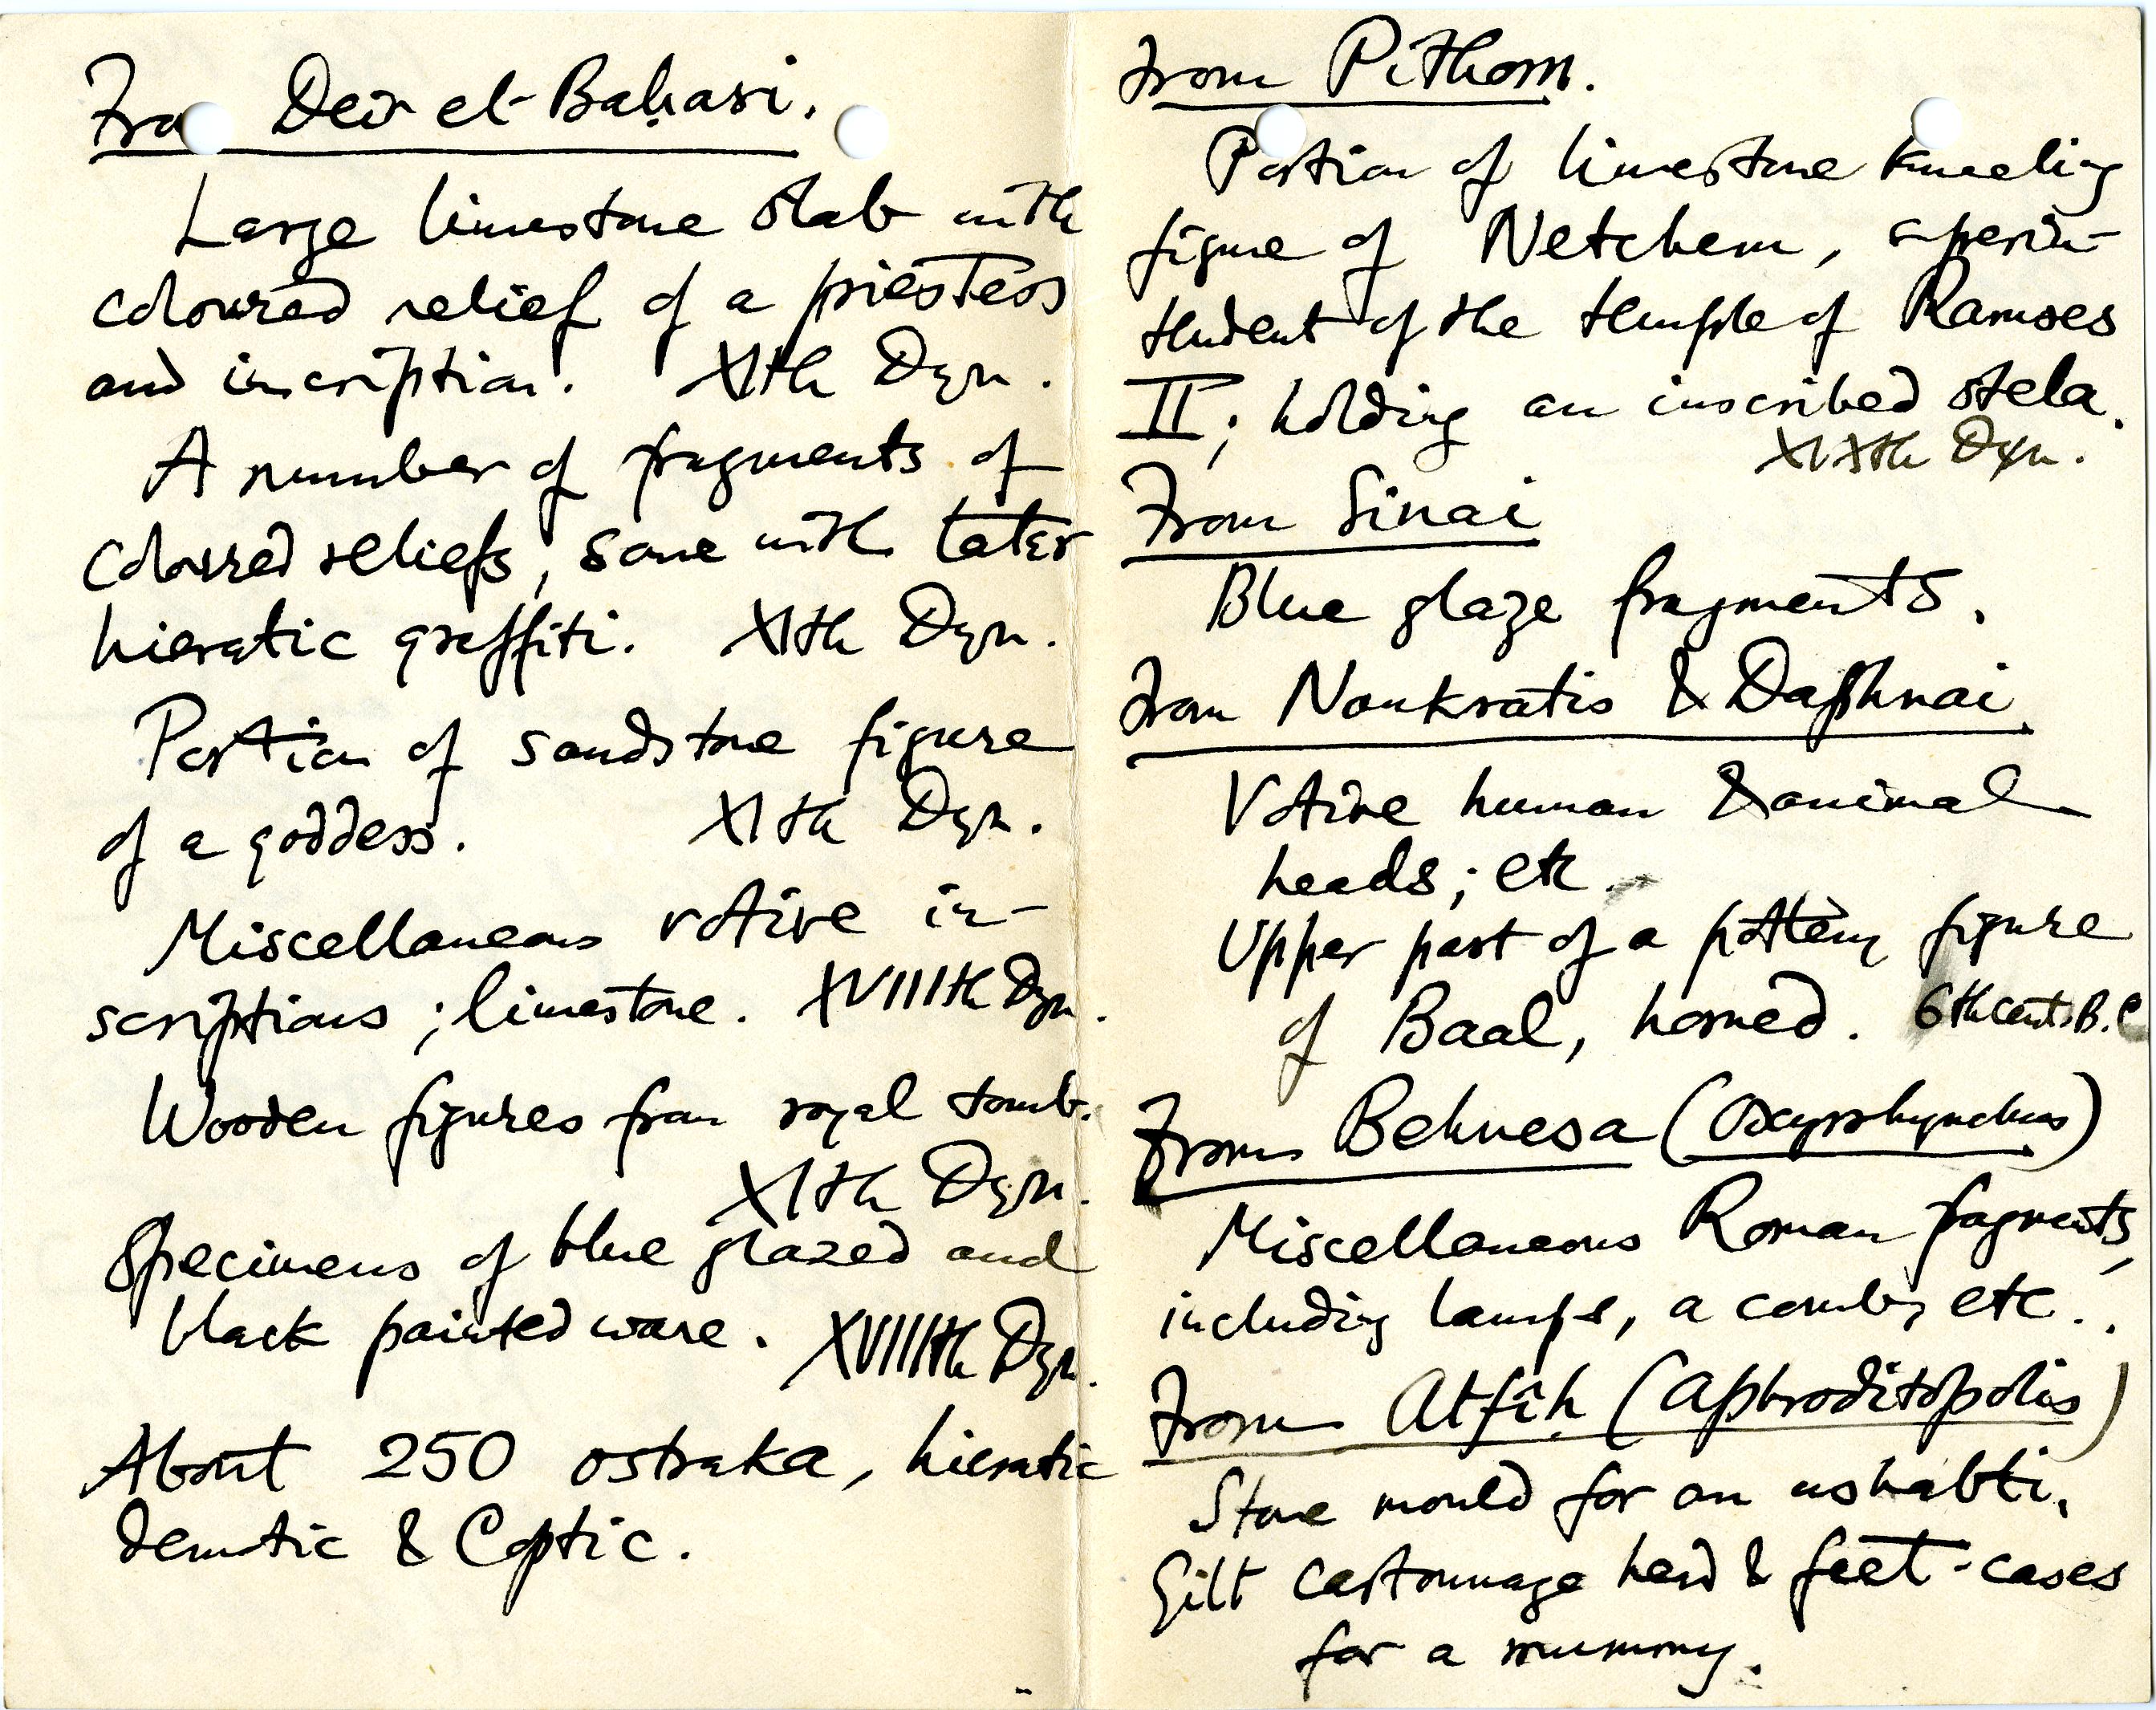 From Deir el-Baḥari.
Large limestone slab with
coloured relief of a priestess
and inscription. XIth Dyn.
A number of fragments of
coloured reliefs, some with later
hieratic graffiti. XIth Dyn.
Portion of sandstone figure
of a goddess. XIth Dyn.
Miscellaneous votive in-
scriptions; limestone. XVIIIth Dyn.
Wooden figures from royal tomb.
XIth Dyn.
Specimens of blue glazed and
black painted ware. XVIIIth Dyn.
About 250 ostraka, hieratic
demotic & Coptic.
From Pithom.
Portion of limestone kneeling
figure of Netchem, superin-
tendent of the temple of Ramses
II; holding an inscribed stela.
XIXth Dyn.
From Sinai
Blue glaze fragments.
From Naukratis & Daphnai.
Votive human & animal
heads; etc.
Upper part of a pottery figure
of Baal, horned. 6th cent. B.C.
From Behnesa (Oxyrrhynchus)
Miscellaneous Roman fragments,
including lamps, a comb, etc..
From Atfîḥ (Aphroditopolis)
Stone mould for an ushabti.
Gilt cartonnage head & feet-cases
for a mummy.